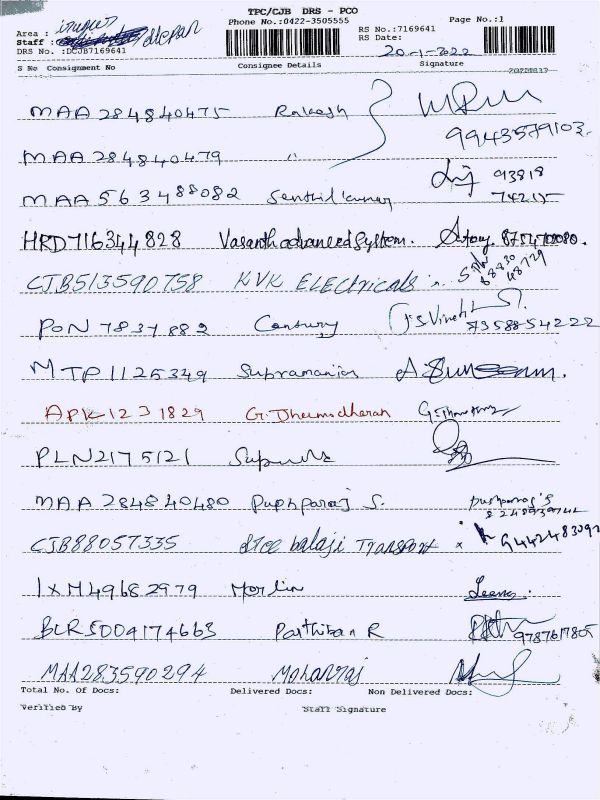 TPC/CJB DRS - PCO
Phone No.:0422-3505555 Page No.:1
Area :
Staff :
DRS No. :DCJB7169641
RS No.:7169641
RS Date: 20-1-2022
S No Consignment No Consignee Details Signature
MAA 284840475 Rakesh
9943579103
MAA 284840479 "
MAA 563488082 Senthil kumar 93818
74215
HRD716344828 Vasanth advanced System. Antony 8754700080.
CJB513590758 KVK Electricals 68830
48729
PON 7837882 Century J.S. Vineth
7358854222
MTP1125349 Supramanian
APK1231829 G. Dharmadharan
PLN2175121
MAA 284840480 Puphparaj S. pushparaj S
CJB88057335 Sree balaji Transport 9442483092
IXM49682979 Merlin Leena.
BLR5004174663 Parthiban R 9787617805
MAA283590294 Mohanraj
Total No. Of Docs: Delivered Docs: Non Delivered Docs:
Verified By Staff Signature